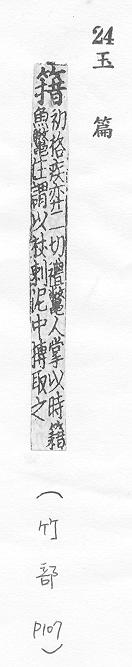 24
玉篇
籍 初格疾弈二切禮鼈人掌以時籍
魚鼈注謂以杖刺泥中摶取之
(竹部 P107)